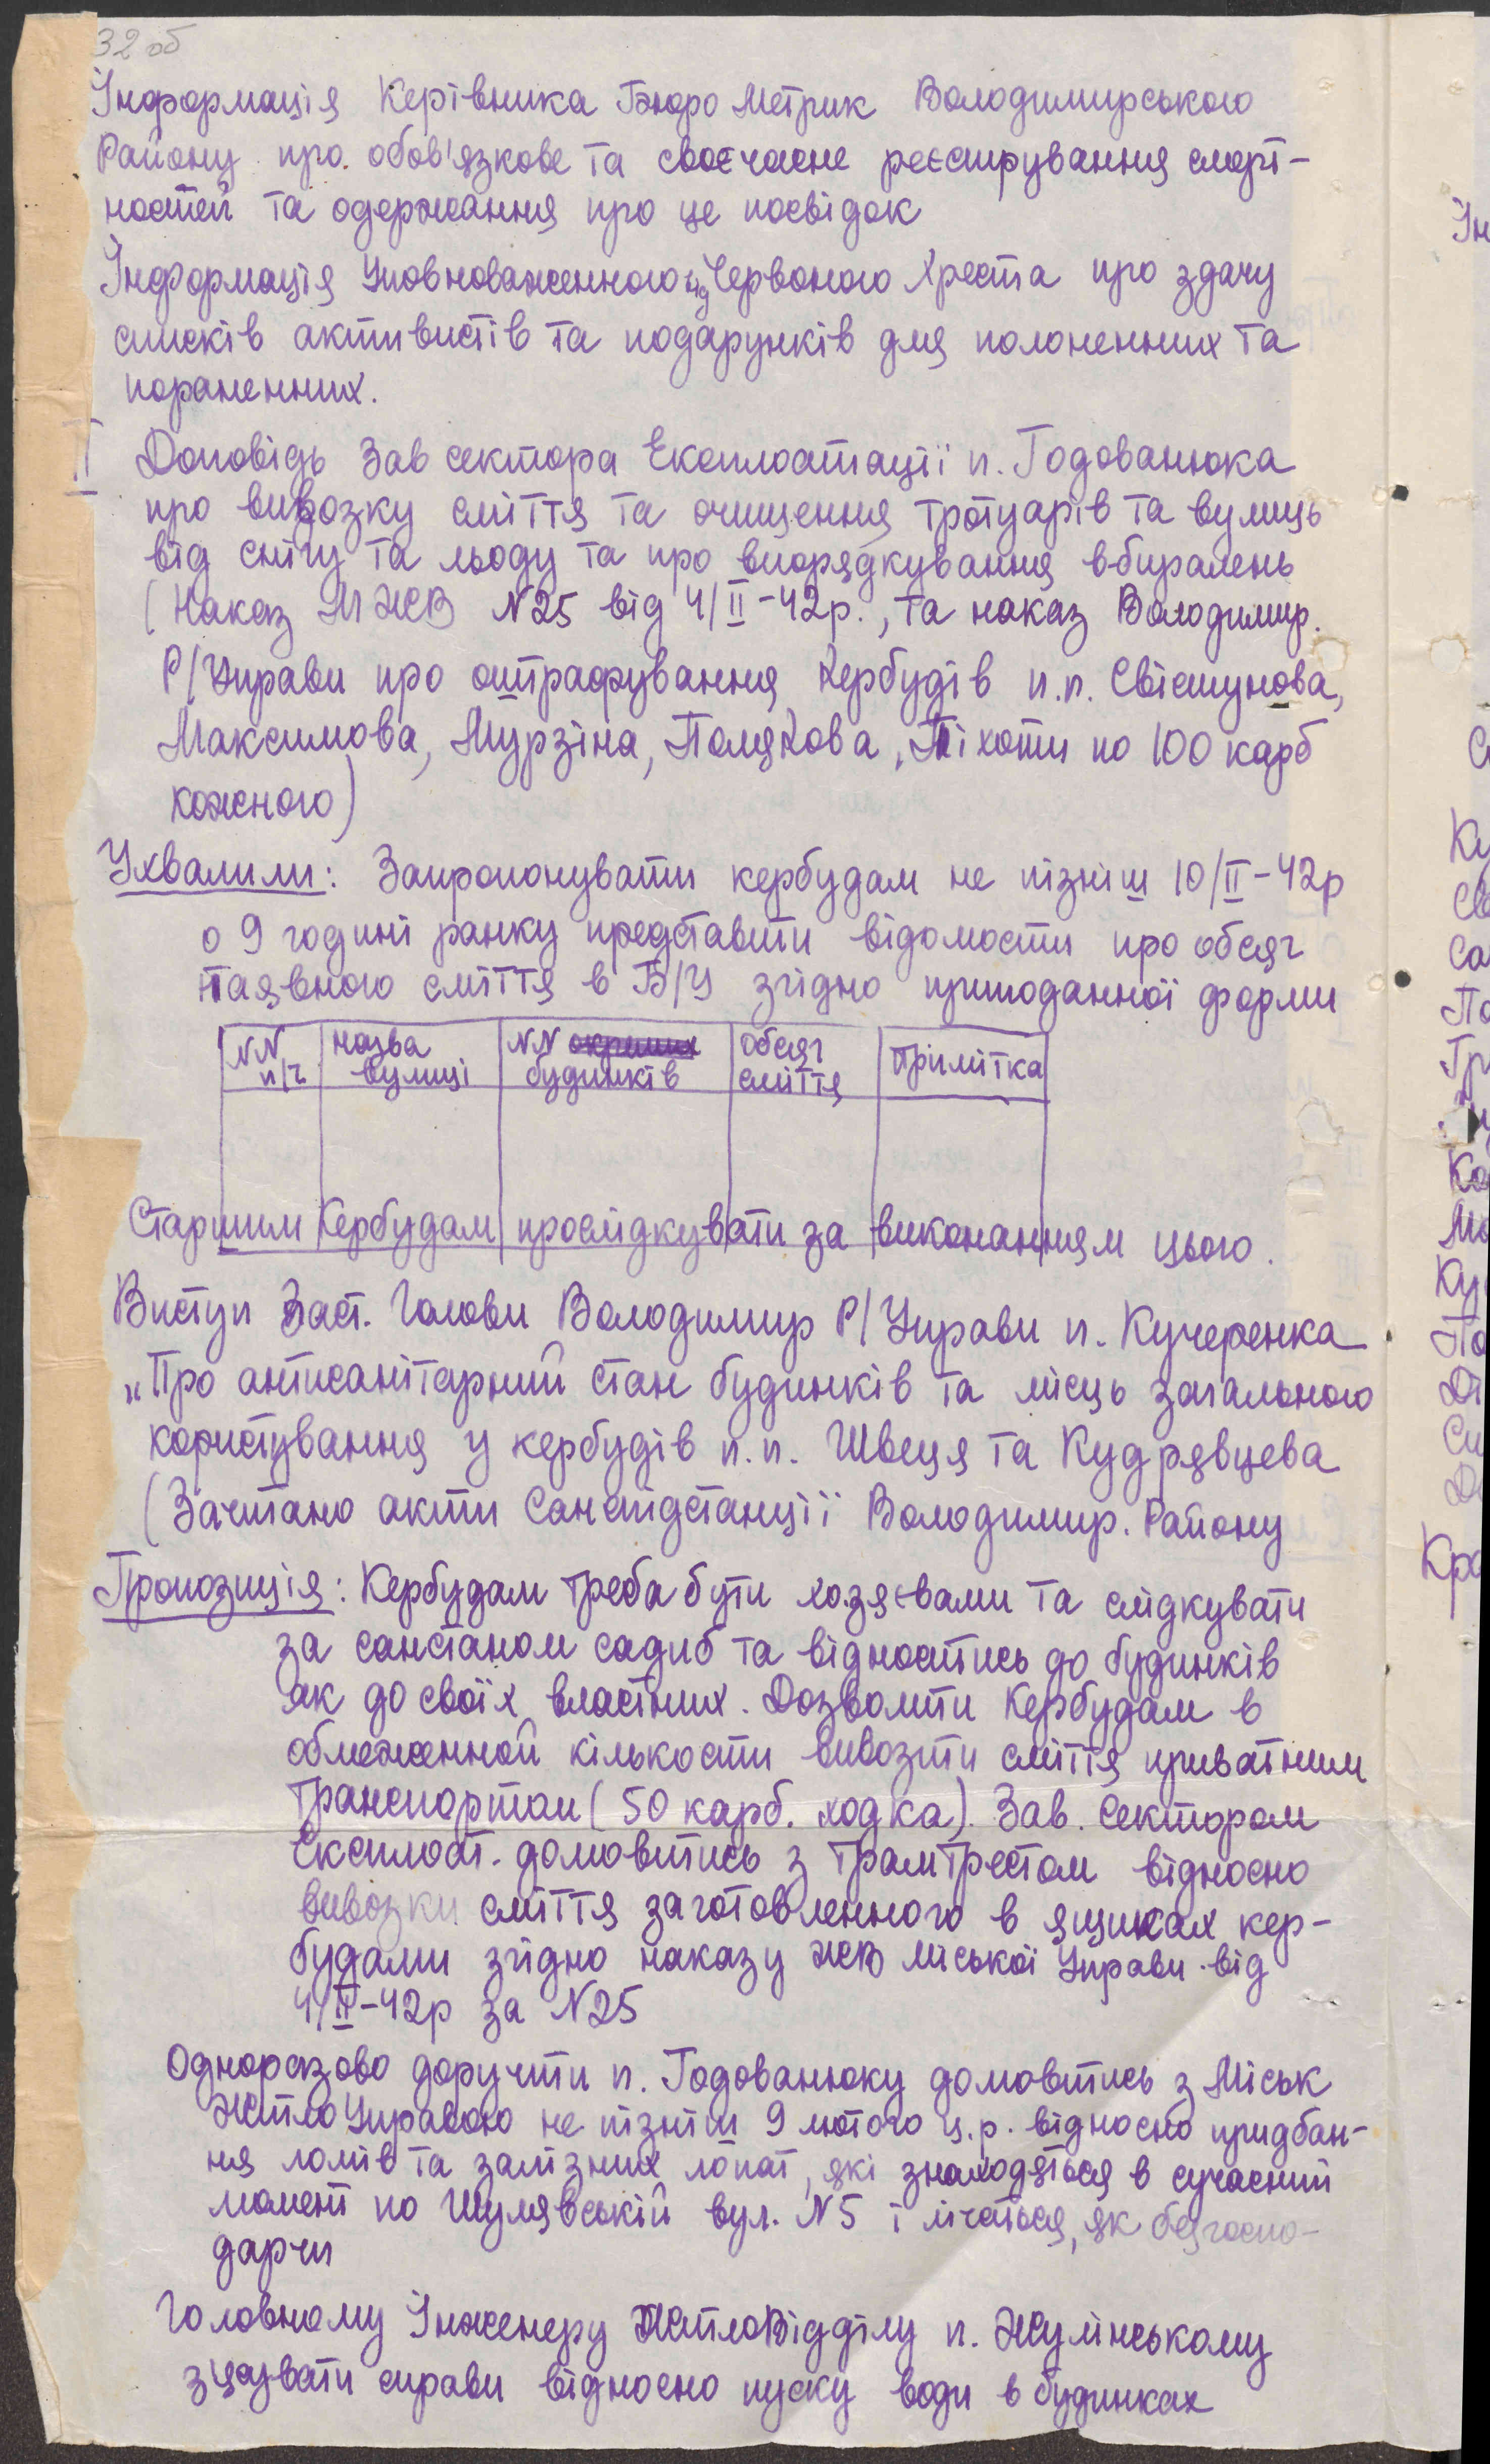 32 об
Інформація Керівника Бюро Метрик Володимирського
Району про обов'язкове та своєчасне реєстрування смерт-
ностей та одержання про це посвідок
Інформація Уповноваженного від Червоного Хреста про здачу
списків активистів та подарунків для полоненних та
пораненних.
II Доповідь Зав сектора Експлоатації п. Годованюка
про вивозку сміття та очищення тротуарів та вулиць
від снігу та льоду та про впорядкування вбиралень
(Наказ МЖВ №25 від 4/II-42р., та наказ Володимир.
Р/Управи про оштрафування Кербудів п.п. Свістунова,
Максимова, Мурзіна, Полякова, Тіхоти по 100 карб
кожного)
Ухвалили: Запропонувати кербудам не пізніш 10/II-42р
о 9 годині ранку представити відомости про обсяг
наявного сміття в Б/У згідно приподанної форми
NN п/ч. назва вулиці NN окремих будинків обсяг сміття Примітка
Старшим Кербудам прослідкувати за виконанням цього.
Виступ Заст. Голови Володимир Р/Управи п. Кучеренка
„Про антисанітарний стан будинків та місць загального
користування у кербудів п.п. Швеця та Кудрявцева
(Зачитано акти Санепідстанції Володимир. Району
Пропозиція: Кербудам треба бути хозяєвами та слідкувати
за санстаном садиб та відноситись до будинків
як до своїх властних. Дозволити Кербудам в
обмеженной кількости вивозити сміття приватним
транспортом (50 карб. ходка). Зав. Сектором
Експлоат. домовитись з Трамтрестом відносно
вивозки сміття заготовленного в ящиках кер-
будами згідно наказу ЖВ міської Управи від
4/II-42р за №25
Одноразово доручити п. Годованюку домовитись з Міськ
Житло Управою не пізніш 9 лютого ц.р. відносно придбан-
ня ломів та залізних лопат, які знаходяться в сучасний
момент по Шулявській вул. №5 і лічаться, як безгоспо-
дарчи
Головному Інженеру ЖитлоВідділу п. Жулінському
з'ясувати справи відносно пуску води в будинках